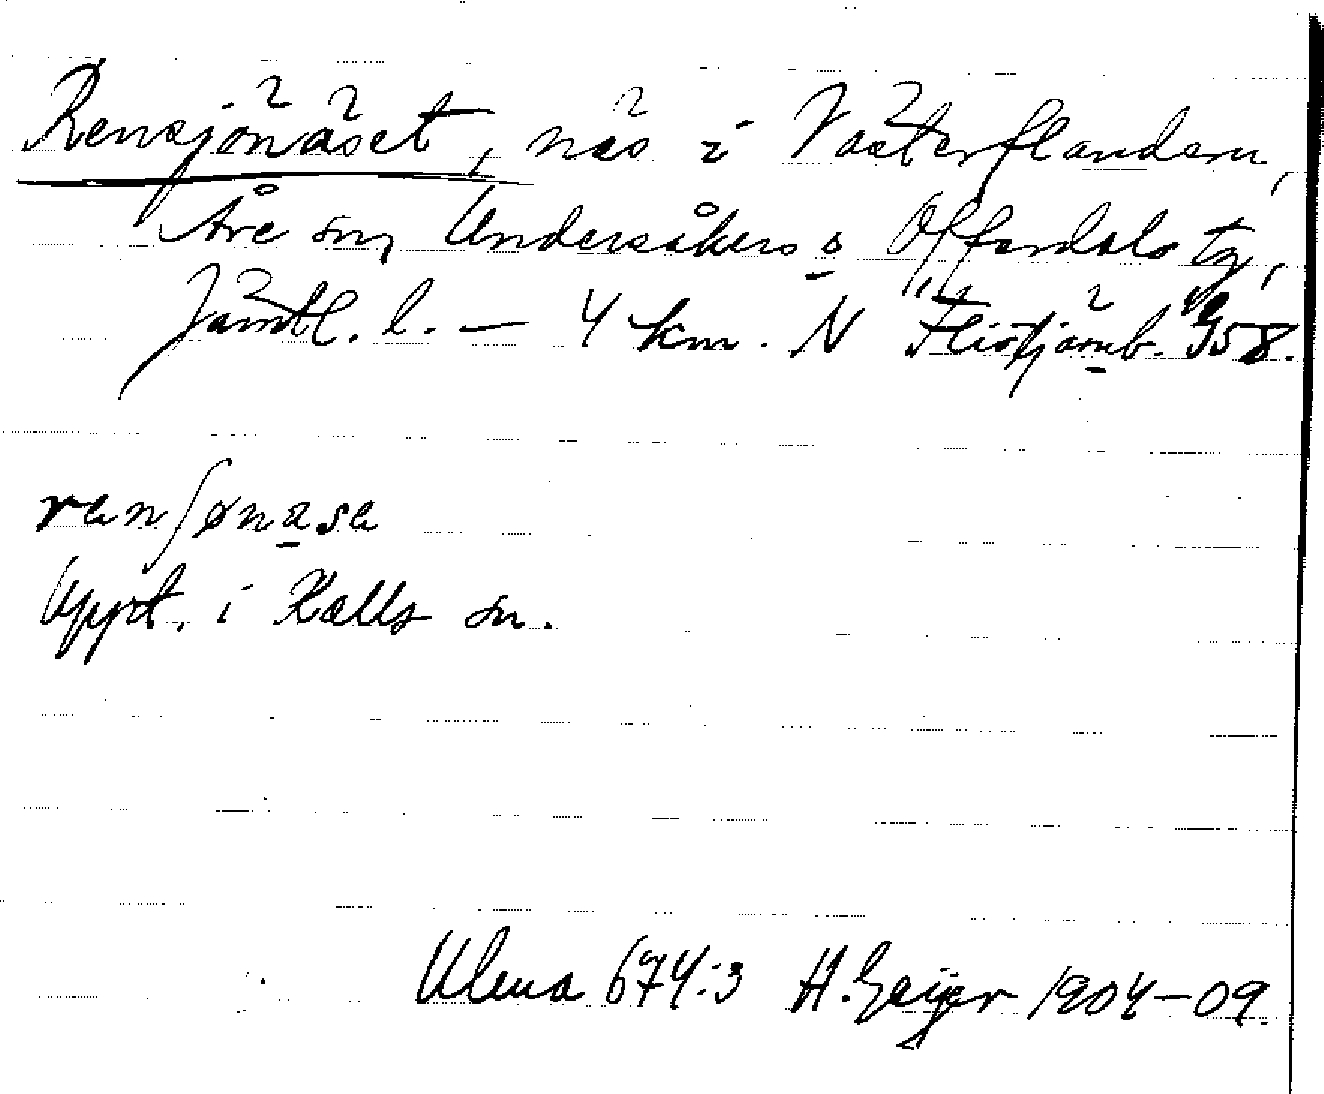 Rensjönäset, näs i Västerflandern,
Åre sn, Undersåkers o Offerdals tg,
Jämtl. l. — 4 km. N 958.
ranʃønasa
Uppt. i Kalls sn.
Ulma 674:3 H. Geijer 1904–09.